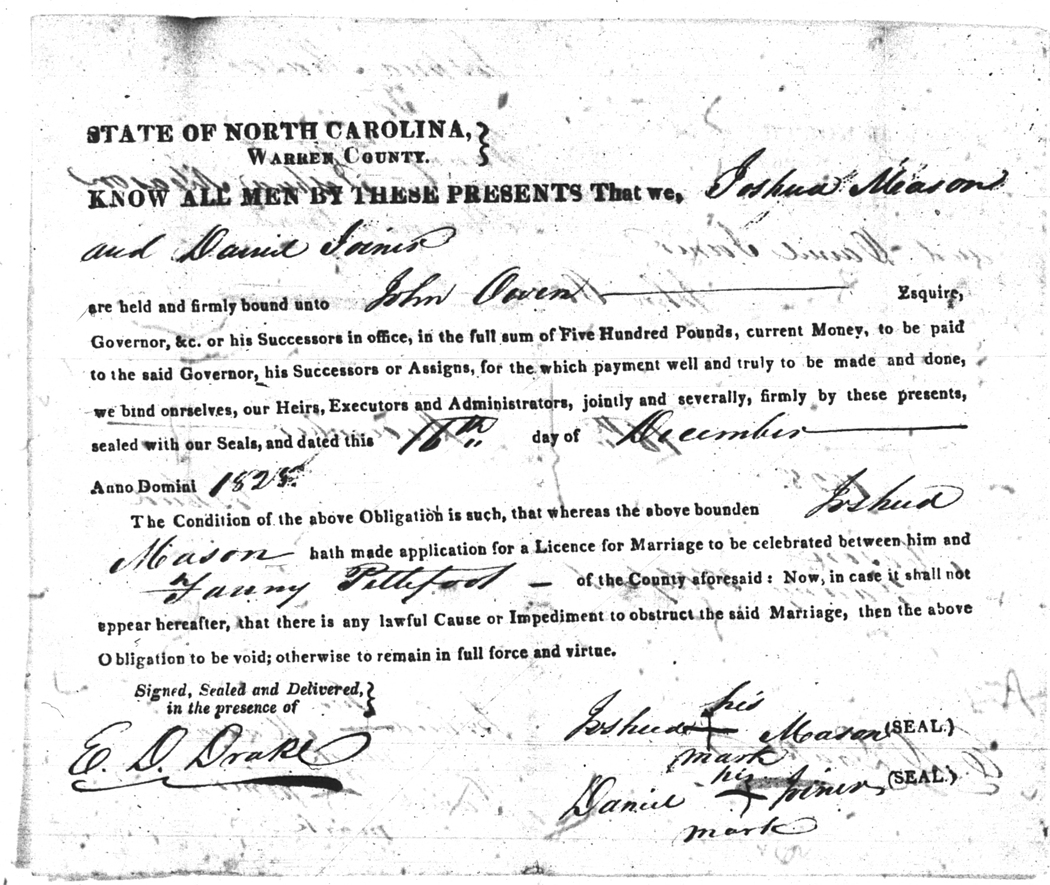 STATE OF NORTH CAROLINA,
WARREN COUNTY.
KNOW ALL MEN BY THESE PRESENTS That we, Joshua Meason
and Daniel Joiner
are held and firmly bound unto John Owen Esquire,
Governor, &c. or his Successors in office, in the full sum of Five Hundred Pounds, current Money, to be paid
to the said Governor, his Successors or Assigns, for the which payment well and truly to be made and done,
we bind ourselves, our Heirs, Executors and Administrators, jointly and severally, firmly by these presents,
sealed with our Seals, and dated this 16th day of December
Anno Domini 1828.
The Condition of the above Obligation is such, that whereas the above bounden Joshua
Mason hath made application for a Licence for Marriage to be celebrated between him and
Fanny Pettifoot — of the County aforesaid: Now, in case it shall not
appear hereafter, that there is any lawful Cause or Impediment to obstruct the said Martiage, then the above
Obligation to be void; otherwise to remain in full force and virtue.
Signed, Sealed and Delivered,
in the presence of
E. D. Drake
his
Joshua + Mason (SEAL.)
mark
his
Daniel + Joiner (SEAL.)
mark